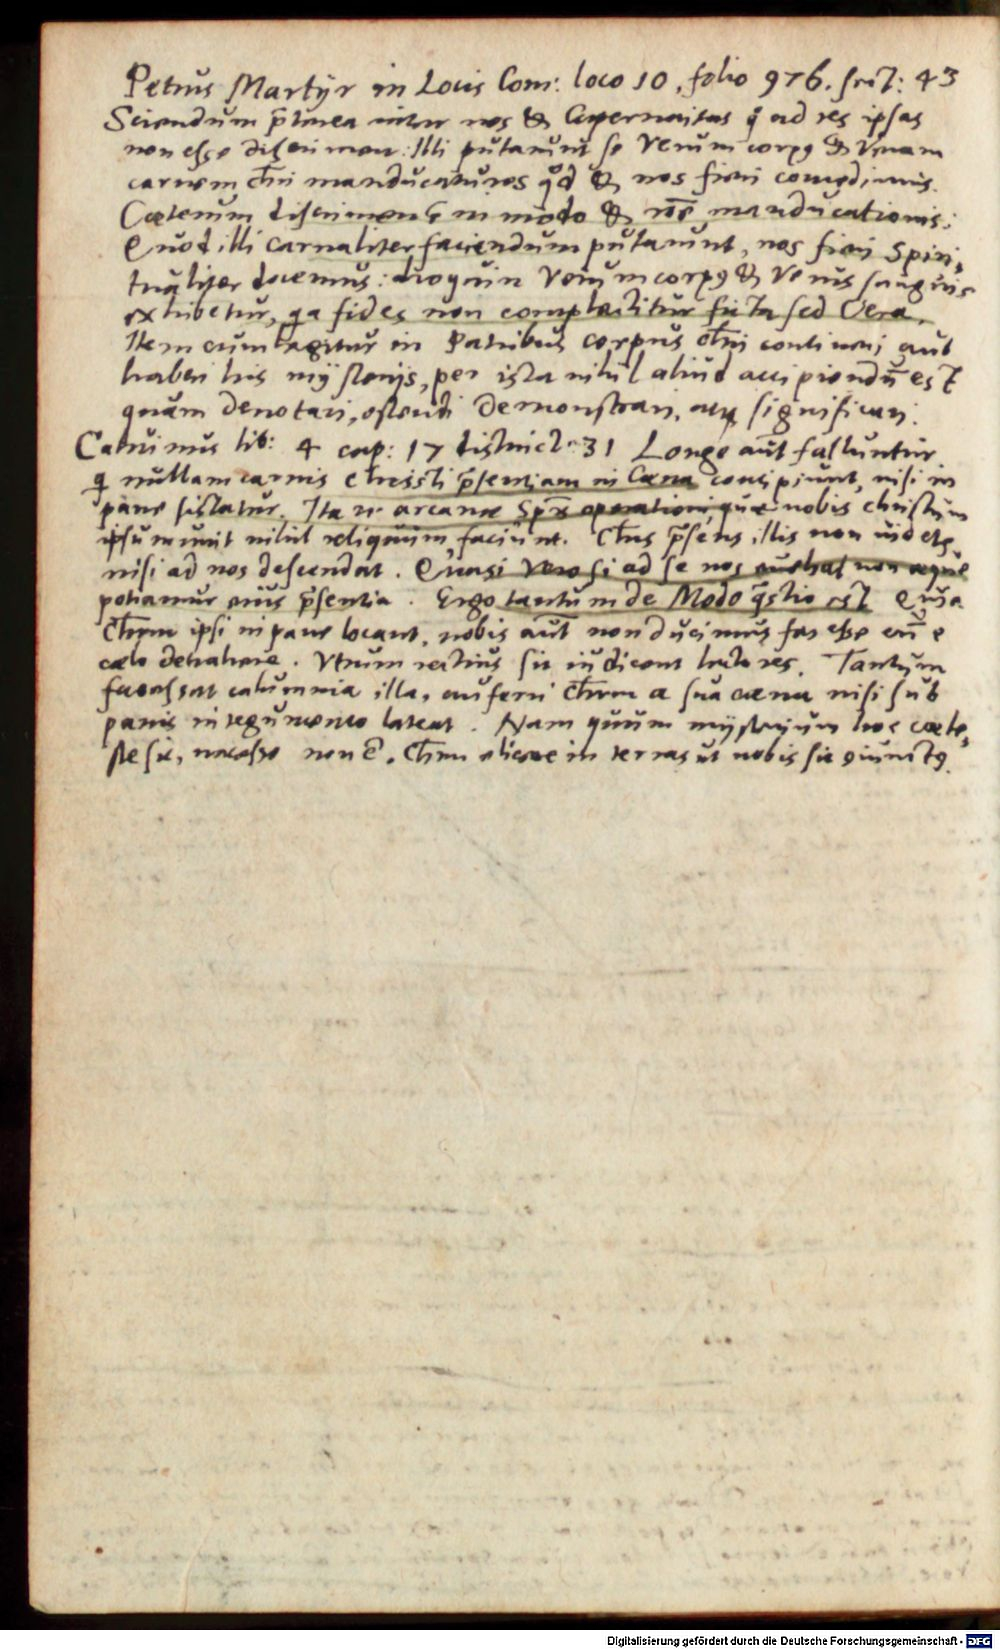 Petrus Martÿr in Locis Com: loco 10, folio 976. sect: 43
Sciendum p̄terea inter nos & Capernaitas q̊ ad res ipsas
non esse discrimen: Illi putarunt se verum corpꝯ & veram
carnem chri manducaturos qd & nos fieri concedimus.
Cæterum discrimen ē in modo & rōe manducationis:
Quod illi carnaliter faciendum putarunt, nos fieri Spiri,
tualiter docemus: alioquin verum corpꝯ & verus sanguis
exhibetur, qa fides non complectitur ficta sed vera.
Item cum agitur in Patribus corpus chri contineri aut
haberi his mÿsterijs, per ista nihil aliud accipiendū est
quam denotari, ostendi demonstrari, atq significari.
Calvinus lib: 4 cap: 17 distinct. 31 Longe aut̄ falluntur
q nullam carnis Christi p̄sentiam in Cœna concipiunt, nisi in
pane sistatur. Ita n. arcanæ Spūs operationi, quæ nobis christum
ipsum unit nihil reliquum faciunt. Chrus p̄sens illis non videtꝛ
nisi ad nos descendat. Quasi vero si ad se nos evehat non æque
potiamur eius p̄sentia. Ergo tantum de Modo q̄stio est Quia
Chrm ipsi in pane locant, nobis aut̄ non ducimus fas esse eū e
cælo detrahere. Utrum rectius sit iudicent lectores. Tantum
facessat calumnia illa, auferri Chrm a sua cœna nisi sub
panis integumento lateat. Nam quum mÿsterium hoc cæle,
ste sit, necesse non ē. Chrm elicere in terras ut nobis sit ꝯiunctꝯ.
Digitalisierung gefördert durch die Deutsche Forschungsgemeinschaft - DFG